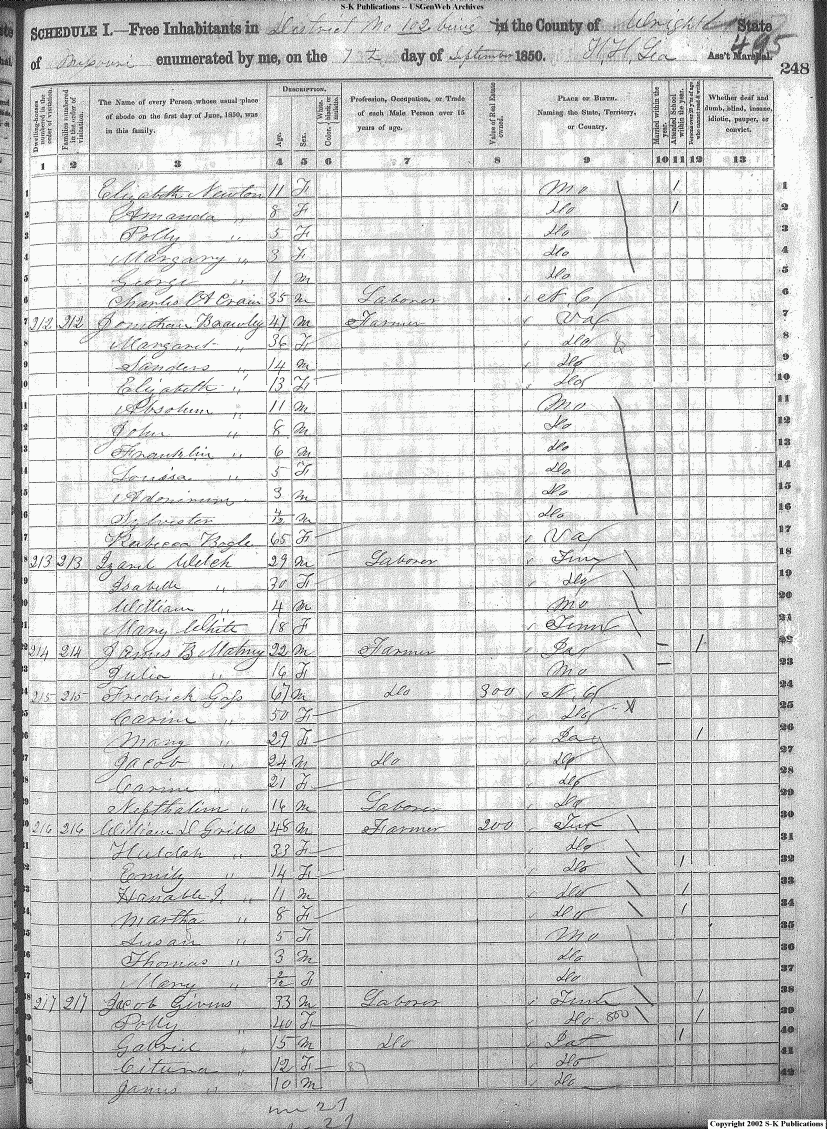 S-K Publications -- USGenWeb Archives
SCHEDULE I.—Free Inhabitants in District No 102 being in the County of Wright State
of Missouri enumerated by me, on the 7th day of September 1850. Ass't Marshal.
495
248
Dwelling-houses numbered in the order of visitation.
Families numbered in the order of visitation.
The Name of every Person whose usual place of abode on the first day of June, 1850, was in this family.
DESCRIPTION.
Age.
Sex.
White, black, or mulatto.
Color,
Profession, Occupation, or Trade of each Male Person over 15 years of age.
Value of Real Estate owned.
PLACE OF BIRTH. Naming the State, Territory, or Country.
Married within the year.
Attended School within the year.
Whether deaf and dumb, blind, insane, idiotic, pauper, or convict.
1 2 3 4 5 6 7 8 9 10 11 12 13
1 Elizabeth Newton 11 F Mo / 1
2 Amanda " 8 F do / 2
3 Polly " 5 F do 3
4 Margary " 3 F do 4
5 George " 1 M do 5
6 Charles A Crain 35 M Laborer N.C 6
7 212 212 Jonathan Brawley 47 M Farmer Va 7
8 Margaret " 36 F do 8
9 Sanders " 14 M do 9
10 Elizabeth " 13 F do 10
11 Absolum " 11 M Mo 11
12 John " 8 M do 12
13 Franklin " 6 M do 13
14 Louisa " 5 F do 14
15 Adonirum " 3 M do 15
16 Sylvester 4/12 M do 16
17 Rebecca Bogle 65 F Va 17
18 213 213 Izard Welch 29 M Laborer Tenn 18
19 Isabella " 30 F do 19
20 William " 4 M Mo 20
21 Mary White 18 F Tenn 21
22 214 214 James B 22 M Farmer / 22
23 Julia " 16 F Mo 23
24 215 215 Fredrick Goss 67 M do 300 N.C 24
25 Carine " 50 F do 25
26 Mary " 29 F / 26
27 Jacob " 24 M do do 27
28 Carine " 21 F do 28
29 Nepthalim " 16 M Laborer do 29
30 216 216 William D Grills 48 M Farmer 200 30
31 Huldah " 33 F do 31
32 Emily " 14 F do / 32
33 Hanable J " 11 M do / 33
34 Martha " 8 F do / 34
35 Susan " 5 F Mo 35
36 Thomas " 3 M do 36
37 Mary " F do 37
38 217 217 Jacob Givins 33 M Laborer Tenn / 38
39 Polly " 40 F do 800 / 39
40 Gabriel " 15 M do / 40
41 " 12 F do 41
42 James " 10 M do 42
Copyright 2002 S-K Publications